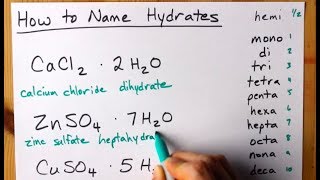 How to Name Hydrates
CaCl₂ · 2H₂O
calcium chloride dihydrate
ZnSO₄ · 7H₂O
zinc sulfate heptahydra
CuSO₄ · 5H
hemi ½
mono 1
di 2
tri 3
tetra 4
penta 5
hexa 6
hepta 7
octa 8
nona 9
deca 10